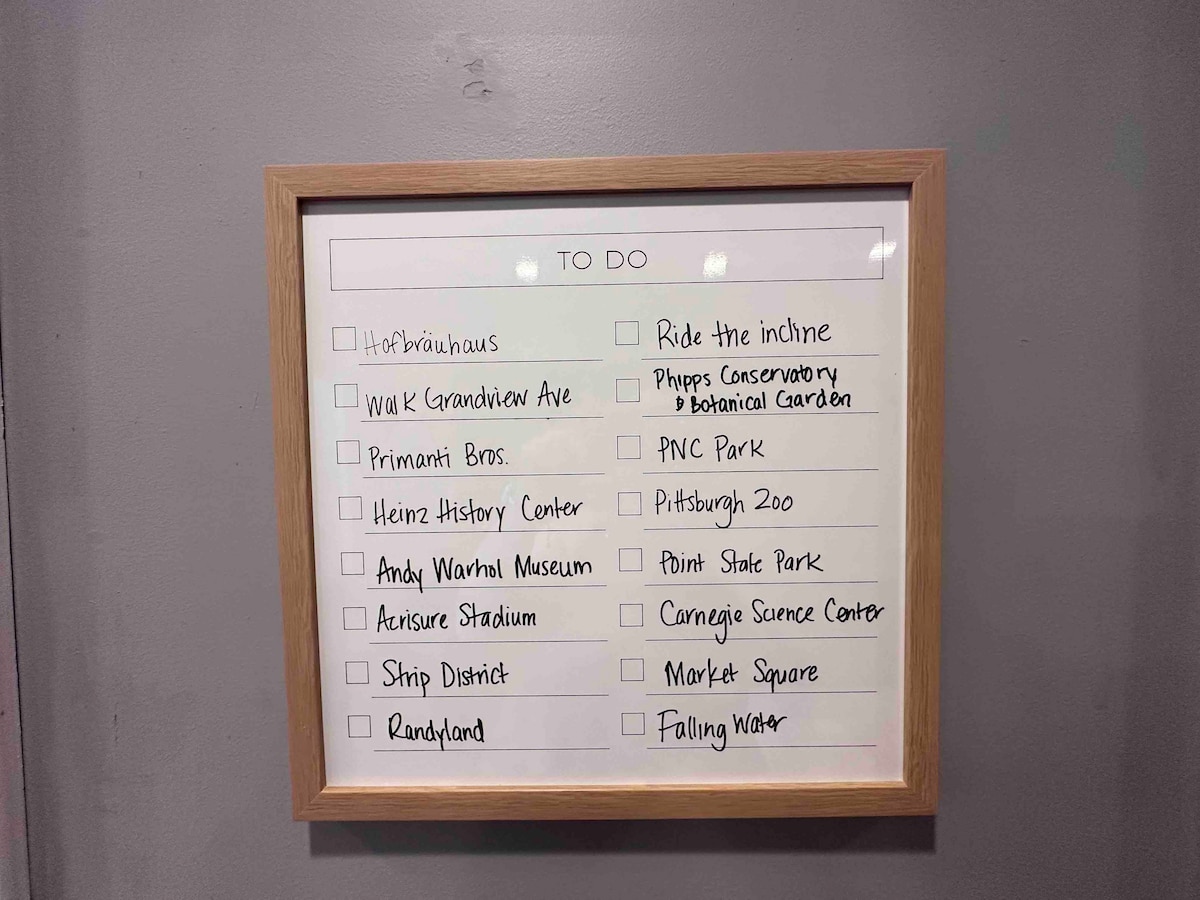 TO DO
Hofbräuhaus
Walk Grandview Ave
Primanti Bros.
Heinz History Center
Andy Warhol Museum
Acrisure Stadium
Strip District
Randyland
Ride the incline
Phipps Conservatory
& Botanical Garden
PNC Park
Pittsburgh Zoo
Point State Park
Carnegie Science Center
Market Square
Falling Water